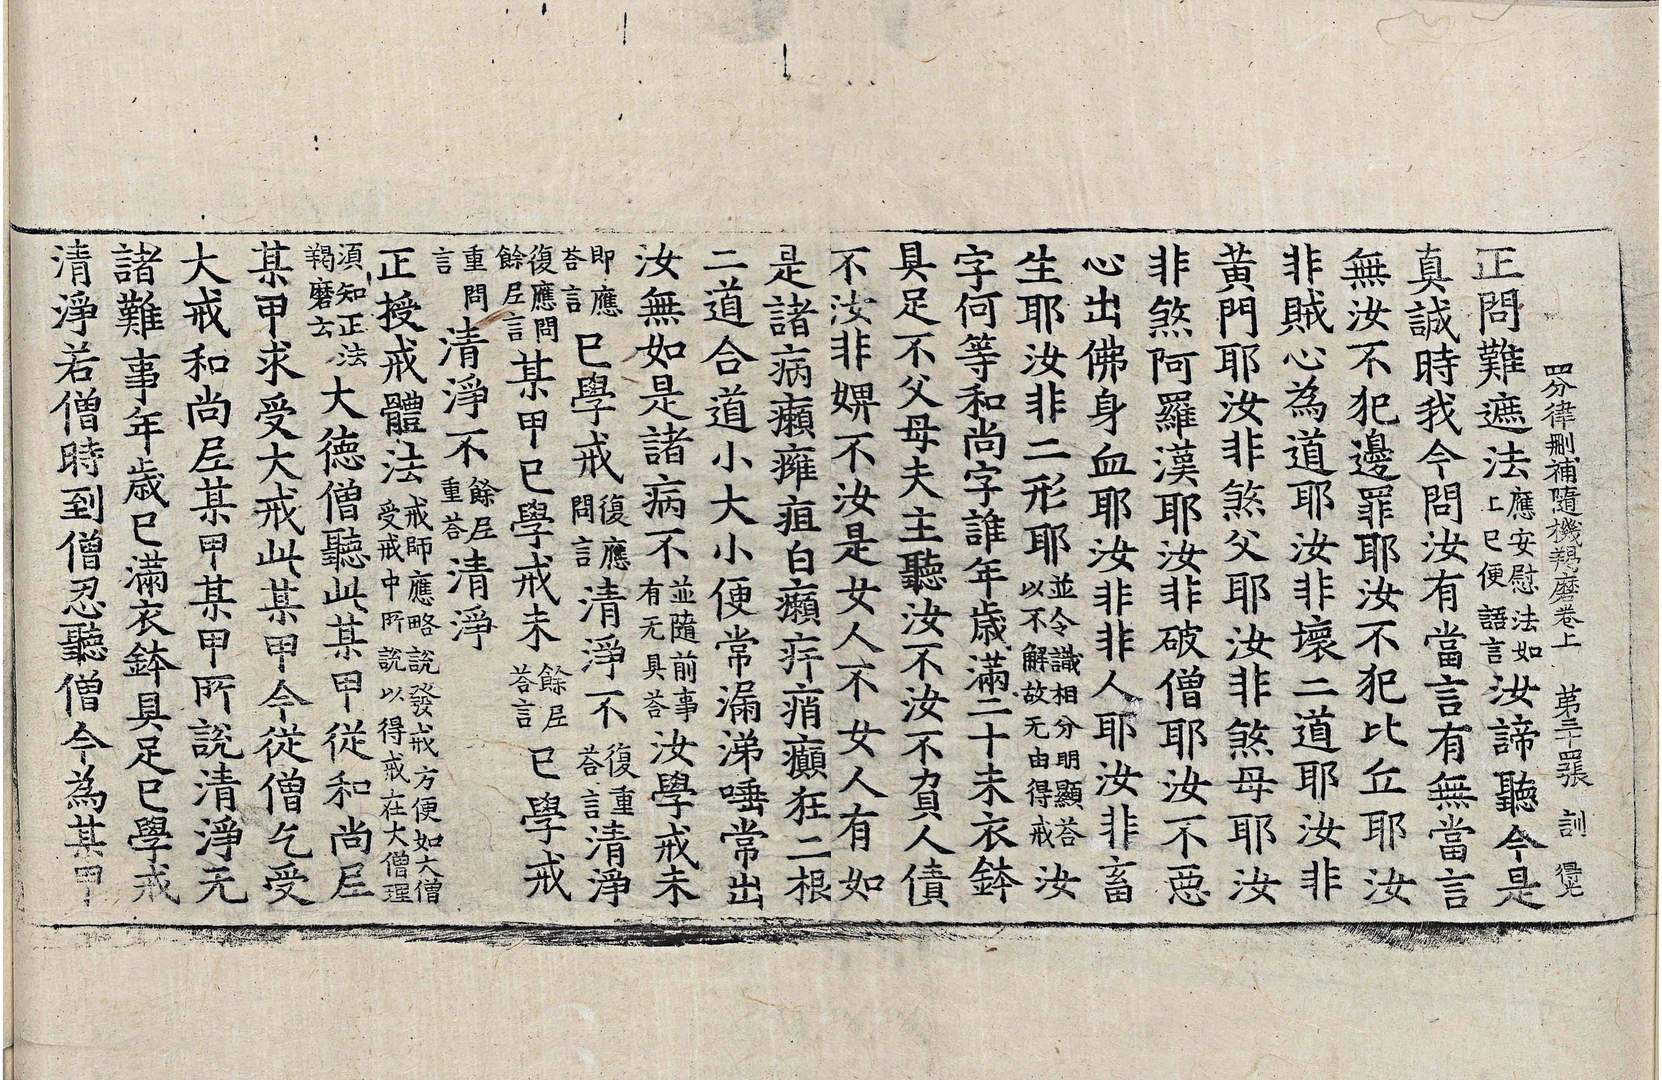 四分律刪補隨機羯磨卷上 第三十四張 訓
正問難遮法應安慰法如上已便語言汝諦聽今是
真誠時我今問汝有當言有無當言
無汝不犯邊罪耶汝不犯比丘耶汝
非賊心為道耶汝非壞二道耶汝非
黃門耶汝非煞父耶汝非煞母耶汝
非煞阿羅漢耶汝非破僧耶汝不惡
心出佛身血耶汝非非人耶汝非畜
生耶汝非二形耶並令識相分明顯荅以不解故无由得戒汝
字何等和尚字誰年歲滿二十未衣鉢
具足不父母夫主聽汝不汝不負人債
不汝非婢不汝是女人不女人有如
是諸病癩癰疽白癩痟癲狂二根
二道合道小大小便常漏涕唾常出
汝無如是諸病不並隨前事有无具荅汝學戒未
即應荅言已學戒復應問言清淨不復重荅言清淨
復應問餘尼言某甲已學戒未餘尼荅言已學戒
重問言清淨不餘尼重荅清淨
正授戒體法戒師應略說發戒方便如大僧受戒中所說以得戒在大僧理
須知正法羯磨云大德僧聽此某甲從和尚尼
某甲求受大戒此某甲今從僧乞受
大戒和尚尼某甲某甲所說清淨无
諸難事年歲已滿衣鉢具足已學戒
清淨若僧時到僧忍聽僧今為某甲